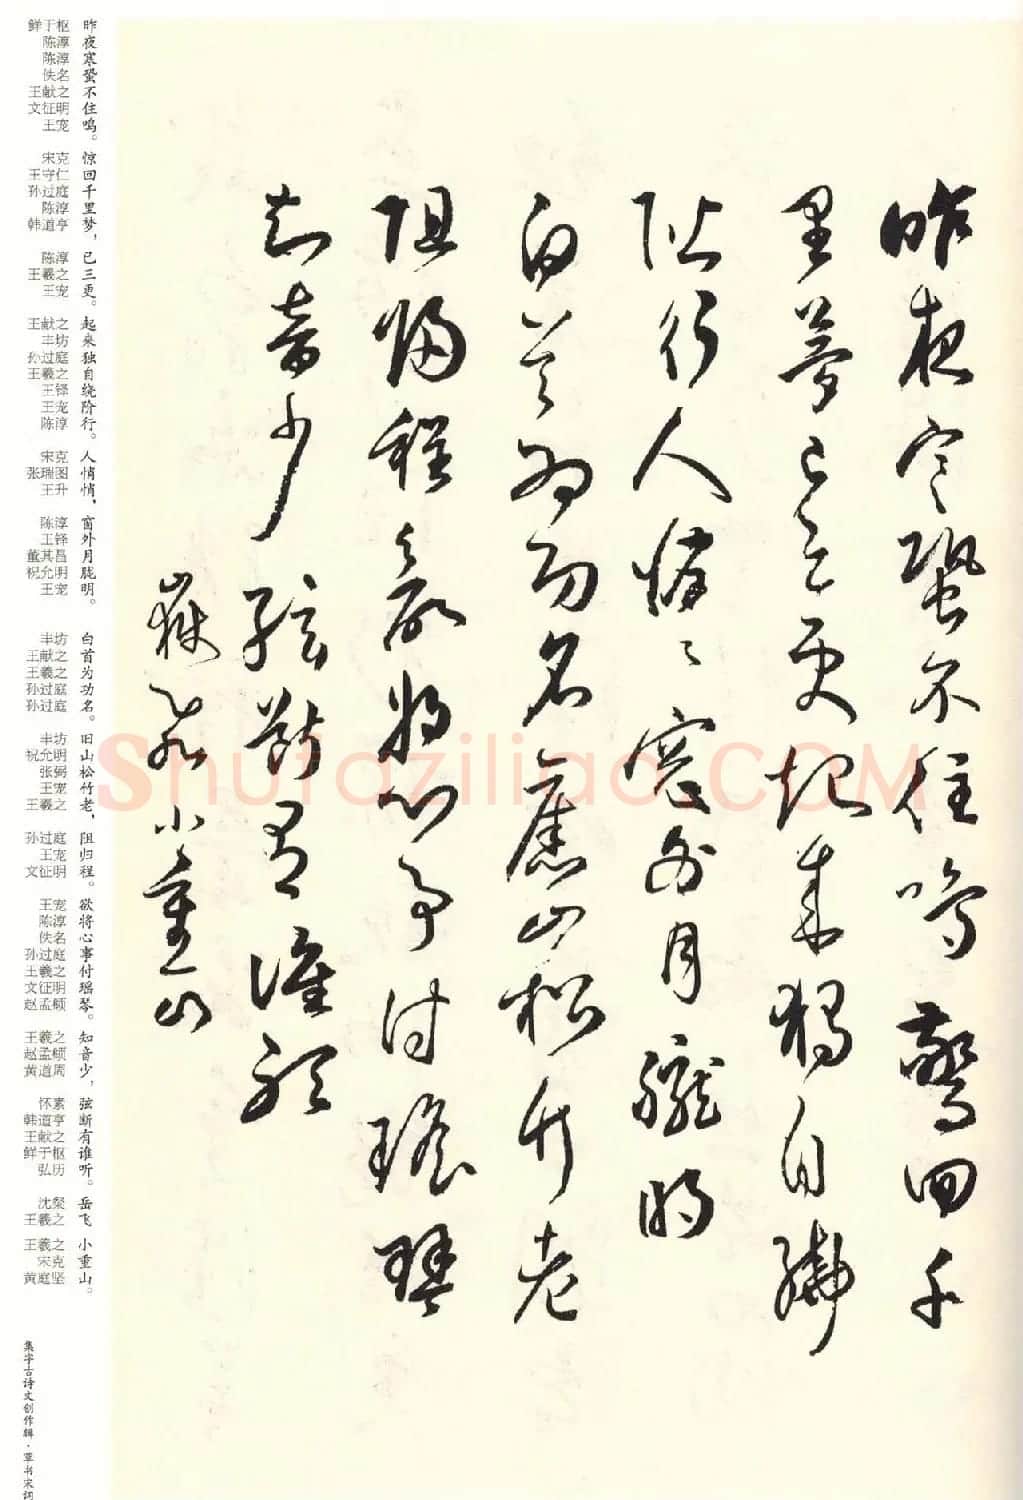 昨夜寒蛩不住鳴驚回千
里夢已三更起來獨自繞
階行人悄々窗外月朧明
白首為功名舊山松竹老
阻歸程欲將心事付瑤琴
知音少弦斷有誰聽
嶽飛小重山
昨夜寒蛩不住鸣。惊回千里梦，已三更。起来独自绕阶行。人悄悄，窗外月胧明。白首为功名。旧山松竹老，阻归程。欲将心事付瑶琴。知音少，弦断有谁听。岳飞小重山。
鲜于枢 陈淳 陈淳 佚名 王献之 文征明 王宠 宋克 王守仁 孙过庭 陈淳 韩道亨 陈淳 王羲之 王宠 王献之 丰坊 孙过庭 王羲之 王铎 王宠 陈淳 宋克 张瑞图 王升 陈淳 王铎 董其昌 祝允明 王宠 丰坊 王献之 王羲之 孙过庭 孙过庭 丰坊 祝允明 张弼 王宠 王羲之 孙过庭 王宠 文征明 王宠 陈淳 佚名 孙过庭 王羲之 文征明 赵孟頫 王羲之 赵孟頫 黄道周 怀素 韩道亨 王献之 鲜于枢 弘历 沈粲 王羲之 王羲之 宋克 黄庭坚
集字古诗文创作辑·草书宋词
Shufaziliao.COM